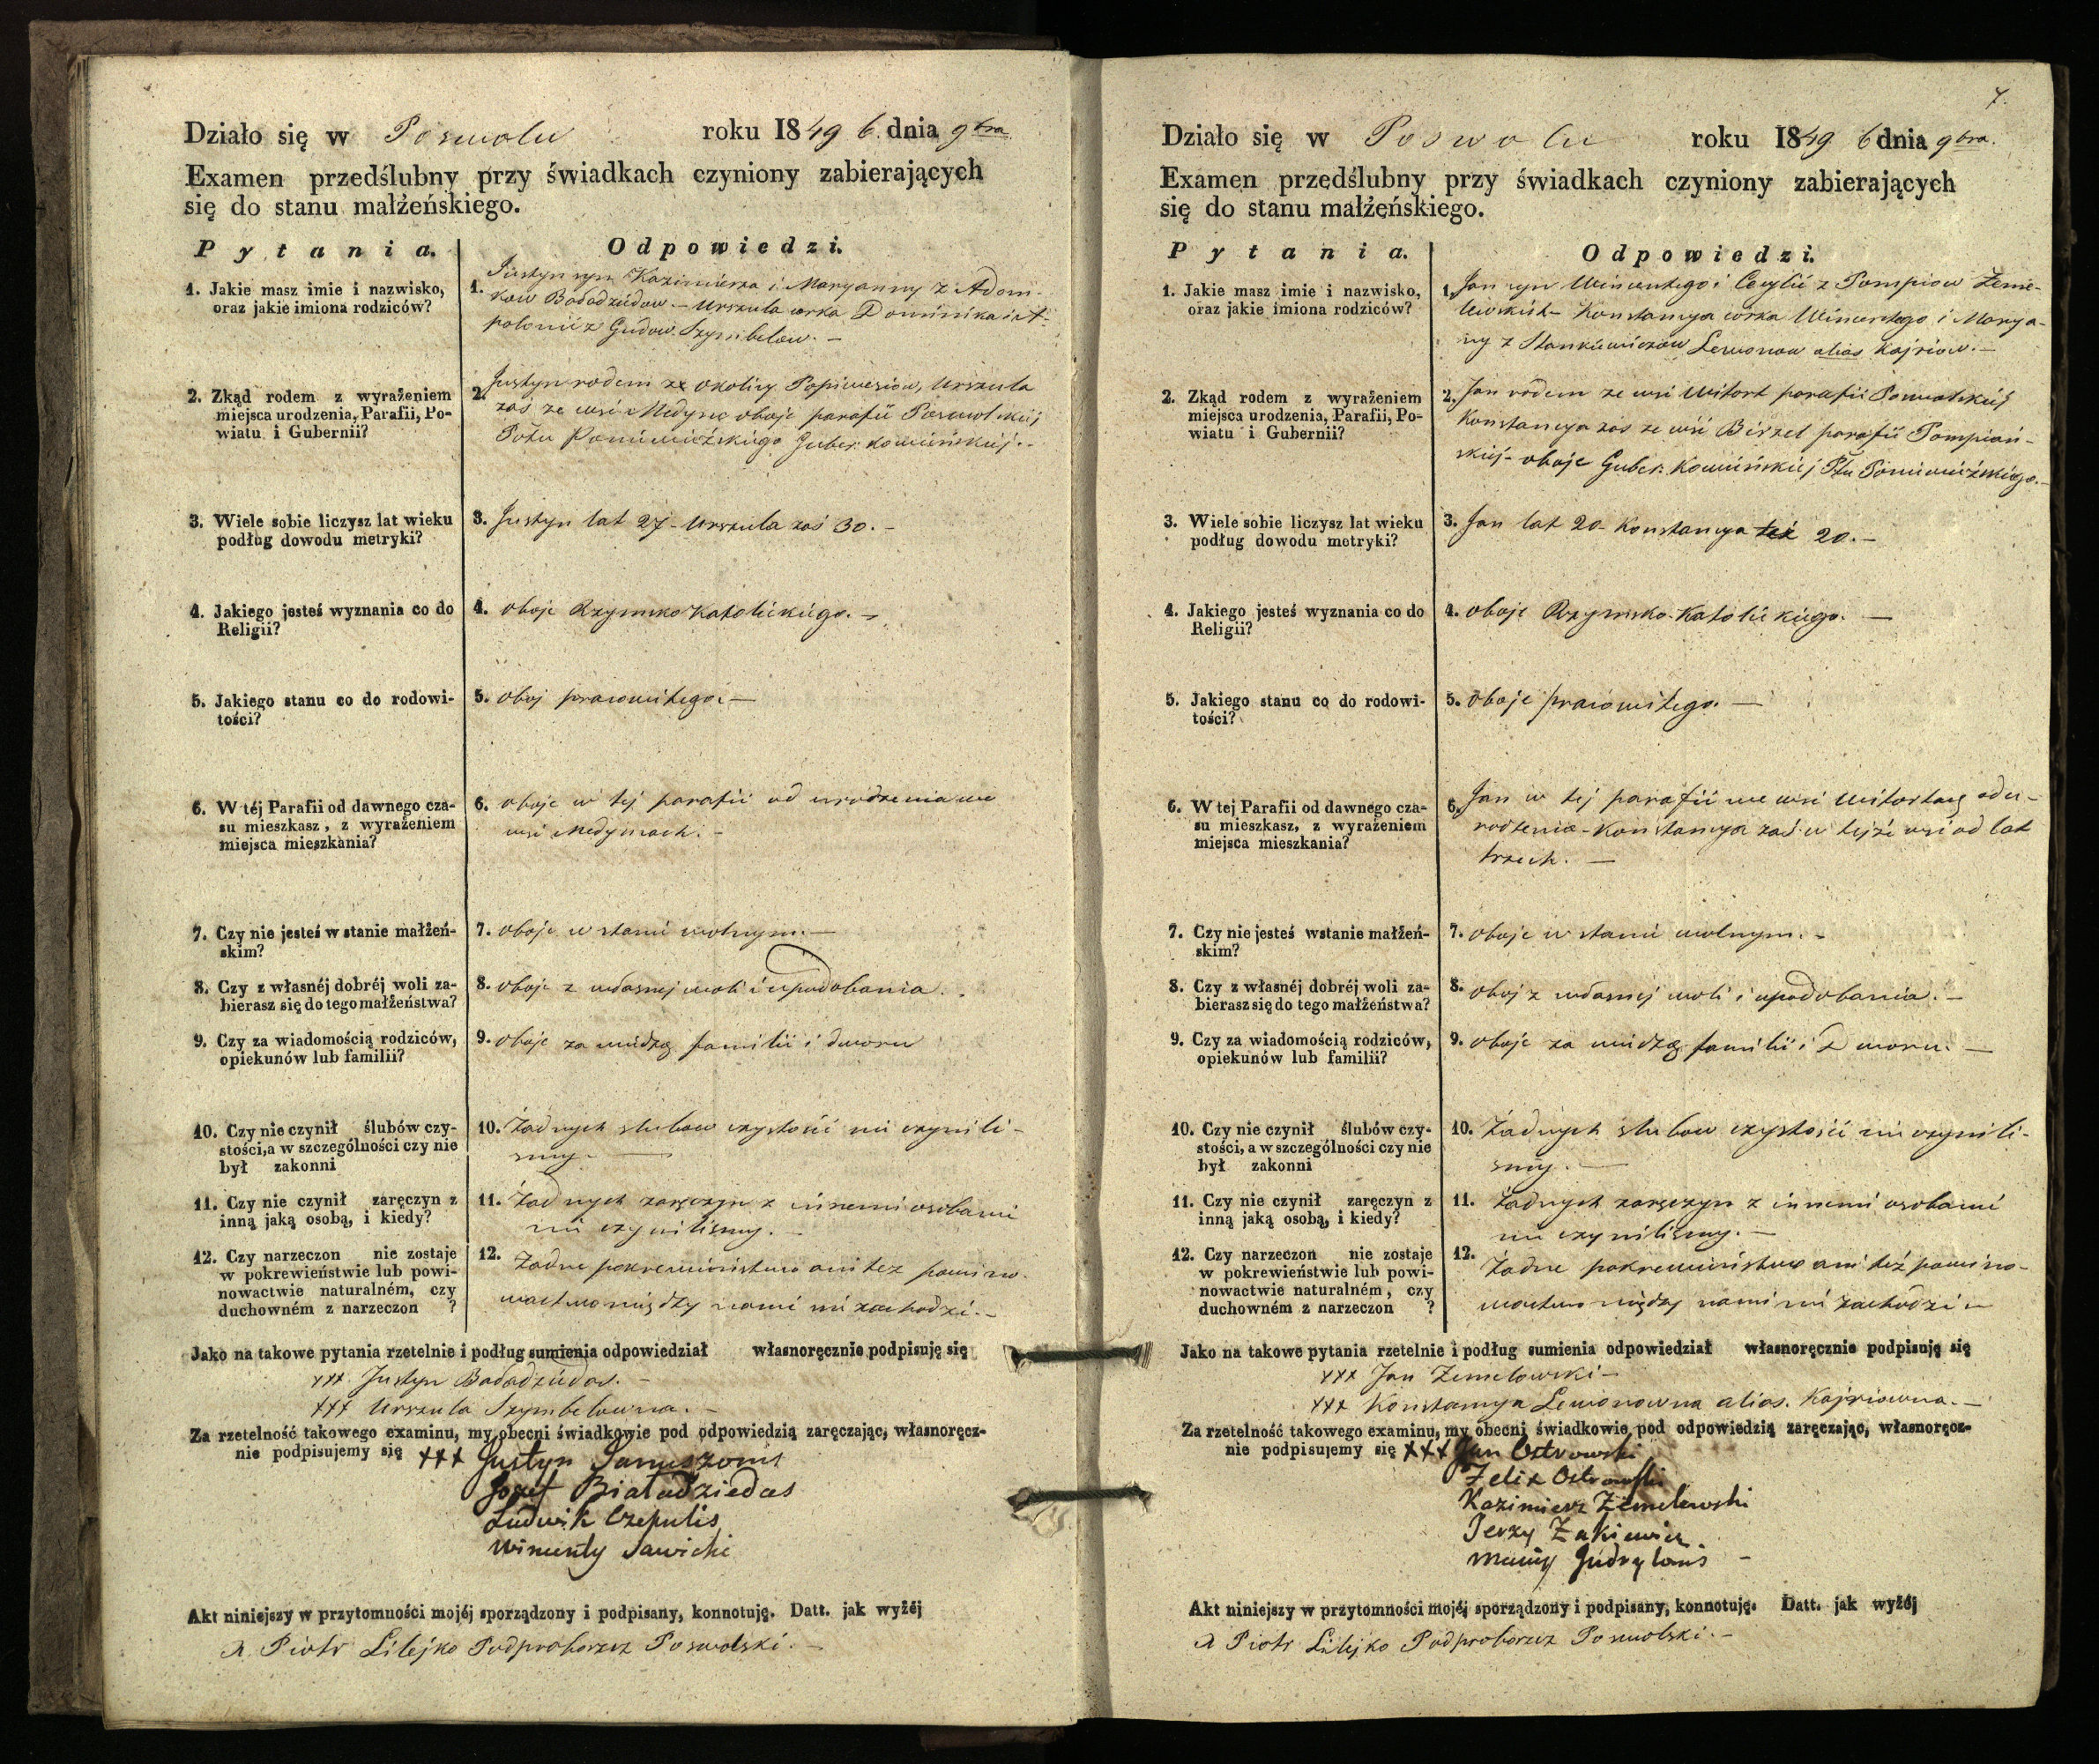 Działo się w Poswolu roku 1849 6. dnia 9bra
Examen przedślubny przy świadkach czyniony zabierających
się do stanu małżeńskiego.
Pytania.
Odpowiedzi.
1. Jakie masz imie i nazwisko,
oraz jakie imiona rodziców?
1. Justyn syn Kazimierza i Maryanny z Adom-
kow Badadziudow – Urszula corka Dominika i A-
polonii z Gudow Szymbelow. –
2. Zkąd rodem z wyrażeniem
miejsca urodzenia, Parafii, Po-
wiatu i Gubernii?
2. Justyn rodem ze okolicy Urszula
zaś ze wsi Medync oboje parafii Poswolskiej
Pottu Poniewieżskiego Guber: kowieńskiej. -
3. Wiele sobie liczysz lat wieku
podług dowodu metryki?
3. Justyn lat 27 – Urszula zaś 30. –
4. Jakiego jesteś wyznania co do
Religii?
4. oboje Rzymsko Katolickiego. –
5. Jakiego stanu co do rodowi-
tości?
5. oboj prawowitego. –
6. W téj Parafii od dawnego cza-
su mieszkasz, z wyrażeniem
miejsca mieszkania?
6. oboje w tej parafii od urodzenia we
wsi Medynach. –
7. Czy nie jesteś w stanie małżeń-
skim?
7. oboje w stanie wolnym. –
8. Czy z własnéj dobréj woli za-
bierasz się do tego małżeństwa?
8. oboje z własnej woli i upodobania.
9. Czy za wiadomością rodziców,
opiekunów lub familii?
9. oboje za wiedzą familii i dworu
10. Czy nie czynił ślubów czy-
stości, a w szczególności czy nie
był zakonni
10. Żadnych slubow czystości nie czynili-
smy. –
11. Czy nie czynił zaręczyn z
inną jaką osobą, i kiedy?
11. Żadnych zaręczyn z innemi osobami
nie czynilismy. –
12. Czy narzeczon nie zostaje
w pokrewieństwie lub powi-
nowactwie naturalném, czy
duchowném z narzeczon ?
12. Żadne pokrewieństwo ani tez powino-
wactwo między nami nie zachodzi. –
Jako na takowe pytania rzetelnie i podług sumienia odpowiedział własnoręcznie podpisuję się
xxx Justyn Badadziudas. –
xxx Urszula Szymbelowna. –
Za rzetelność takowego examinu, my obecni świadkowie pod odpowiedzią zaręczając, własnoręcz-
nie podpisujemy się xxx Justyn Januszonis
Jozef Bialadziedas
Ludwik Czepulis
Wincenty Sawicki
Akt niniejszy w przytomności mojéj sporządzony i podpisany, konnotuję. Datt. jak wyżéj
X Piotr Lilejko Podproborszcz Poswolski. –
7.
Działo się w Poswolu roku 1849 6 dnia 9bra.
Examen przedślubny przy świadkach czyniony zabierających
się do stanu małżeńskiego.
Pytania.
Odpowiedzi.
1. Jakie masz imie i nazwisko,
oraz jakie imiona rodziców?
1. Jan syn Wincentego i Cecylii z Pompiow Zeme-
lewskich – Konstancya corka Wincentego i Marya-
ny z Stankiewiczow Lewonow alias Kajriow. –
2. Zkąd rodem z wyrażeniem
miejsca urodzenia, Parafii, Po-
wiatu i Gubernii?
2. Jan rodem ze wsi Witort parafii Poswolskiej
Konstancya zas ze wsi Birżel parafii Pompiań-
skiej – oboje Guber: Kowieńskiej Ptu Poniewieżskiego. –
3. Wiele sobie liczysz lat wieku
podług dowodu metryki?
3. Jan lat 20 – Konstancya też 20. –
4. Jakiego jesteś wyznania co do
Religii?
4. oboje Rzymsko-Katolickiego. –
5. Jakiego stanu co do rodowi-
tości?
5. oboje prawowitego. –
6. W tej Parafii od dawnego cza-
su mieszkasz, z wyrażeniem
miejsca mieszkania?
6. Jan w tej parafii we wsi Witortach od u-
rodzenia – Konstancya zaś w tejże wsi od lat
trzech. –
7. Czy nie jesteś wstanie małżeń-
skim?
7. oboje w stanie wolnym. –
8. Czy z własnéj dobréj woli za-
bierasz się do tego małżeństwa?
8. oboj z własnej woli i upodobania. –
9. Czy za wiadomością rodziców,
opiekunów lub familii?
9. oboje za wiedzą familii i Dworu. –
10. Czy nie czynił ślubów czy-
stości, a w szczególności czy nie
był zakonni
10. Żadnych slubow czystości nie czynili-
smy. –
11. Czy nie czynił zaręczyn z
inną jaką osobą, i kiedy?
11. Żadnych zaręczyn z innemi osobami
nie czynilismy. –
12. Czy narzeczon nie zostaje
w pokrewieństwie lub powi-
nowactwie naturalném, czy
duchowném z narzeczon ?
12. Żadne pokrewieństwo ani też powino-
wactwo między nami nie zachodzi –
Jako na takowe pytania rzetelnie i podług sumienia odpowiedział własnoręcznie podpisuję się
xxx Jan Zemelowski –
xxx Konstancya Lewonowna alias. Kajriowna. –
Za rzetelność takowego examinu, my obecni świadkowie pod odpowiedzią zaręczając, własnoręcz-
nie podpisujemy się xxx Jan Ostrowski
Felix Ostrowski
Kazimierz Zemelewski
Jerzy Zakiewicz
Maciej Gudrylonis –
Akt niniejszy w przytomności mojéj sporządzony i podpisany, konnotuję. Datt. jak wyżéj
X Piotr Lilejko Podproborszcz Poswolski. –